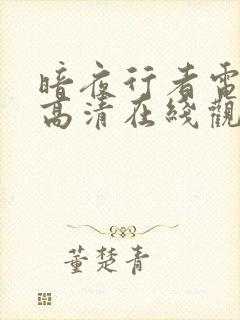 暗夜行者電
高清在綫觀
董楚青